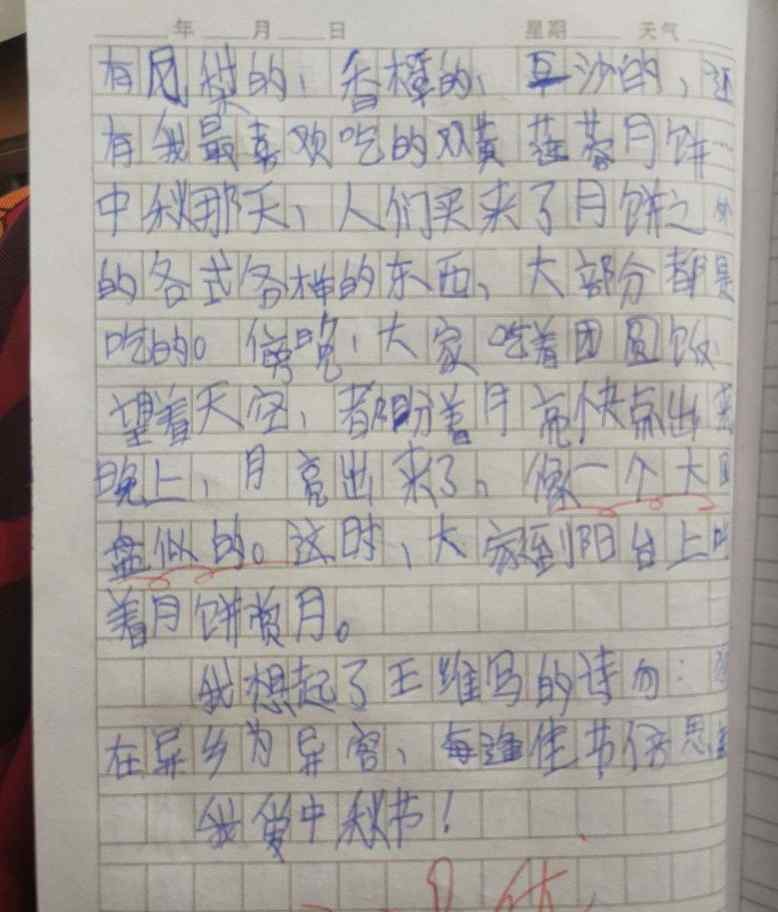 年 月 日 星期 天气
有凤梨的，香橙的，豆沙的，还
有我最喜欢吃的双黄莲蓉月饼…
中秋那天，人们买来了月饼之外
的各式各样的东西，大部分都是
吃的。傍晚，大家吃着团圆饭
望着天空，都盼着月亮快点出来
晚上，月亮出来了，像一个大圆
盘似的。这时，大家到阳台上吃
着月饼赏月。
我想起了王维写的诗句：
在异乡为异客，每逢佳节倍思
我爱中秋节！